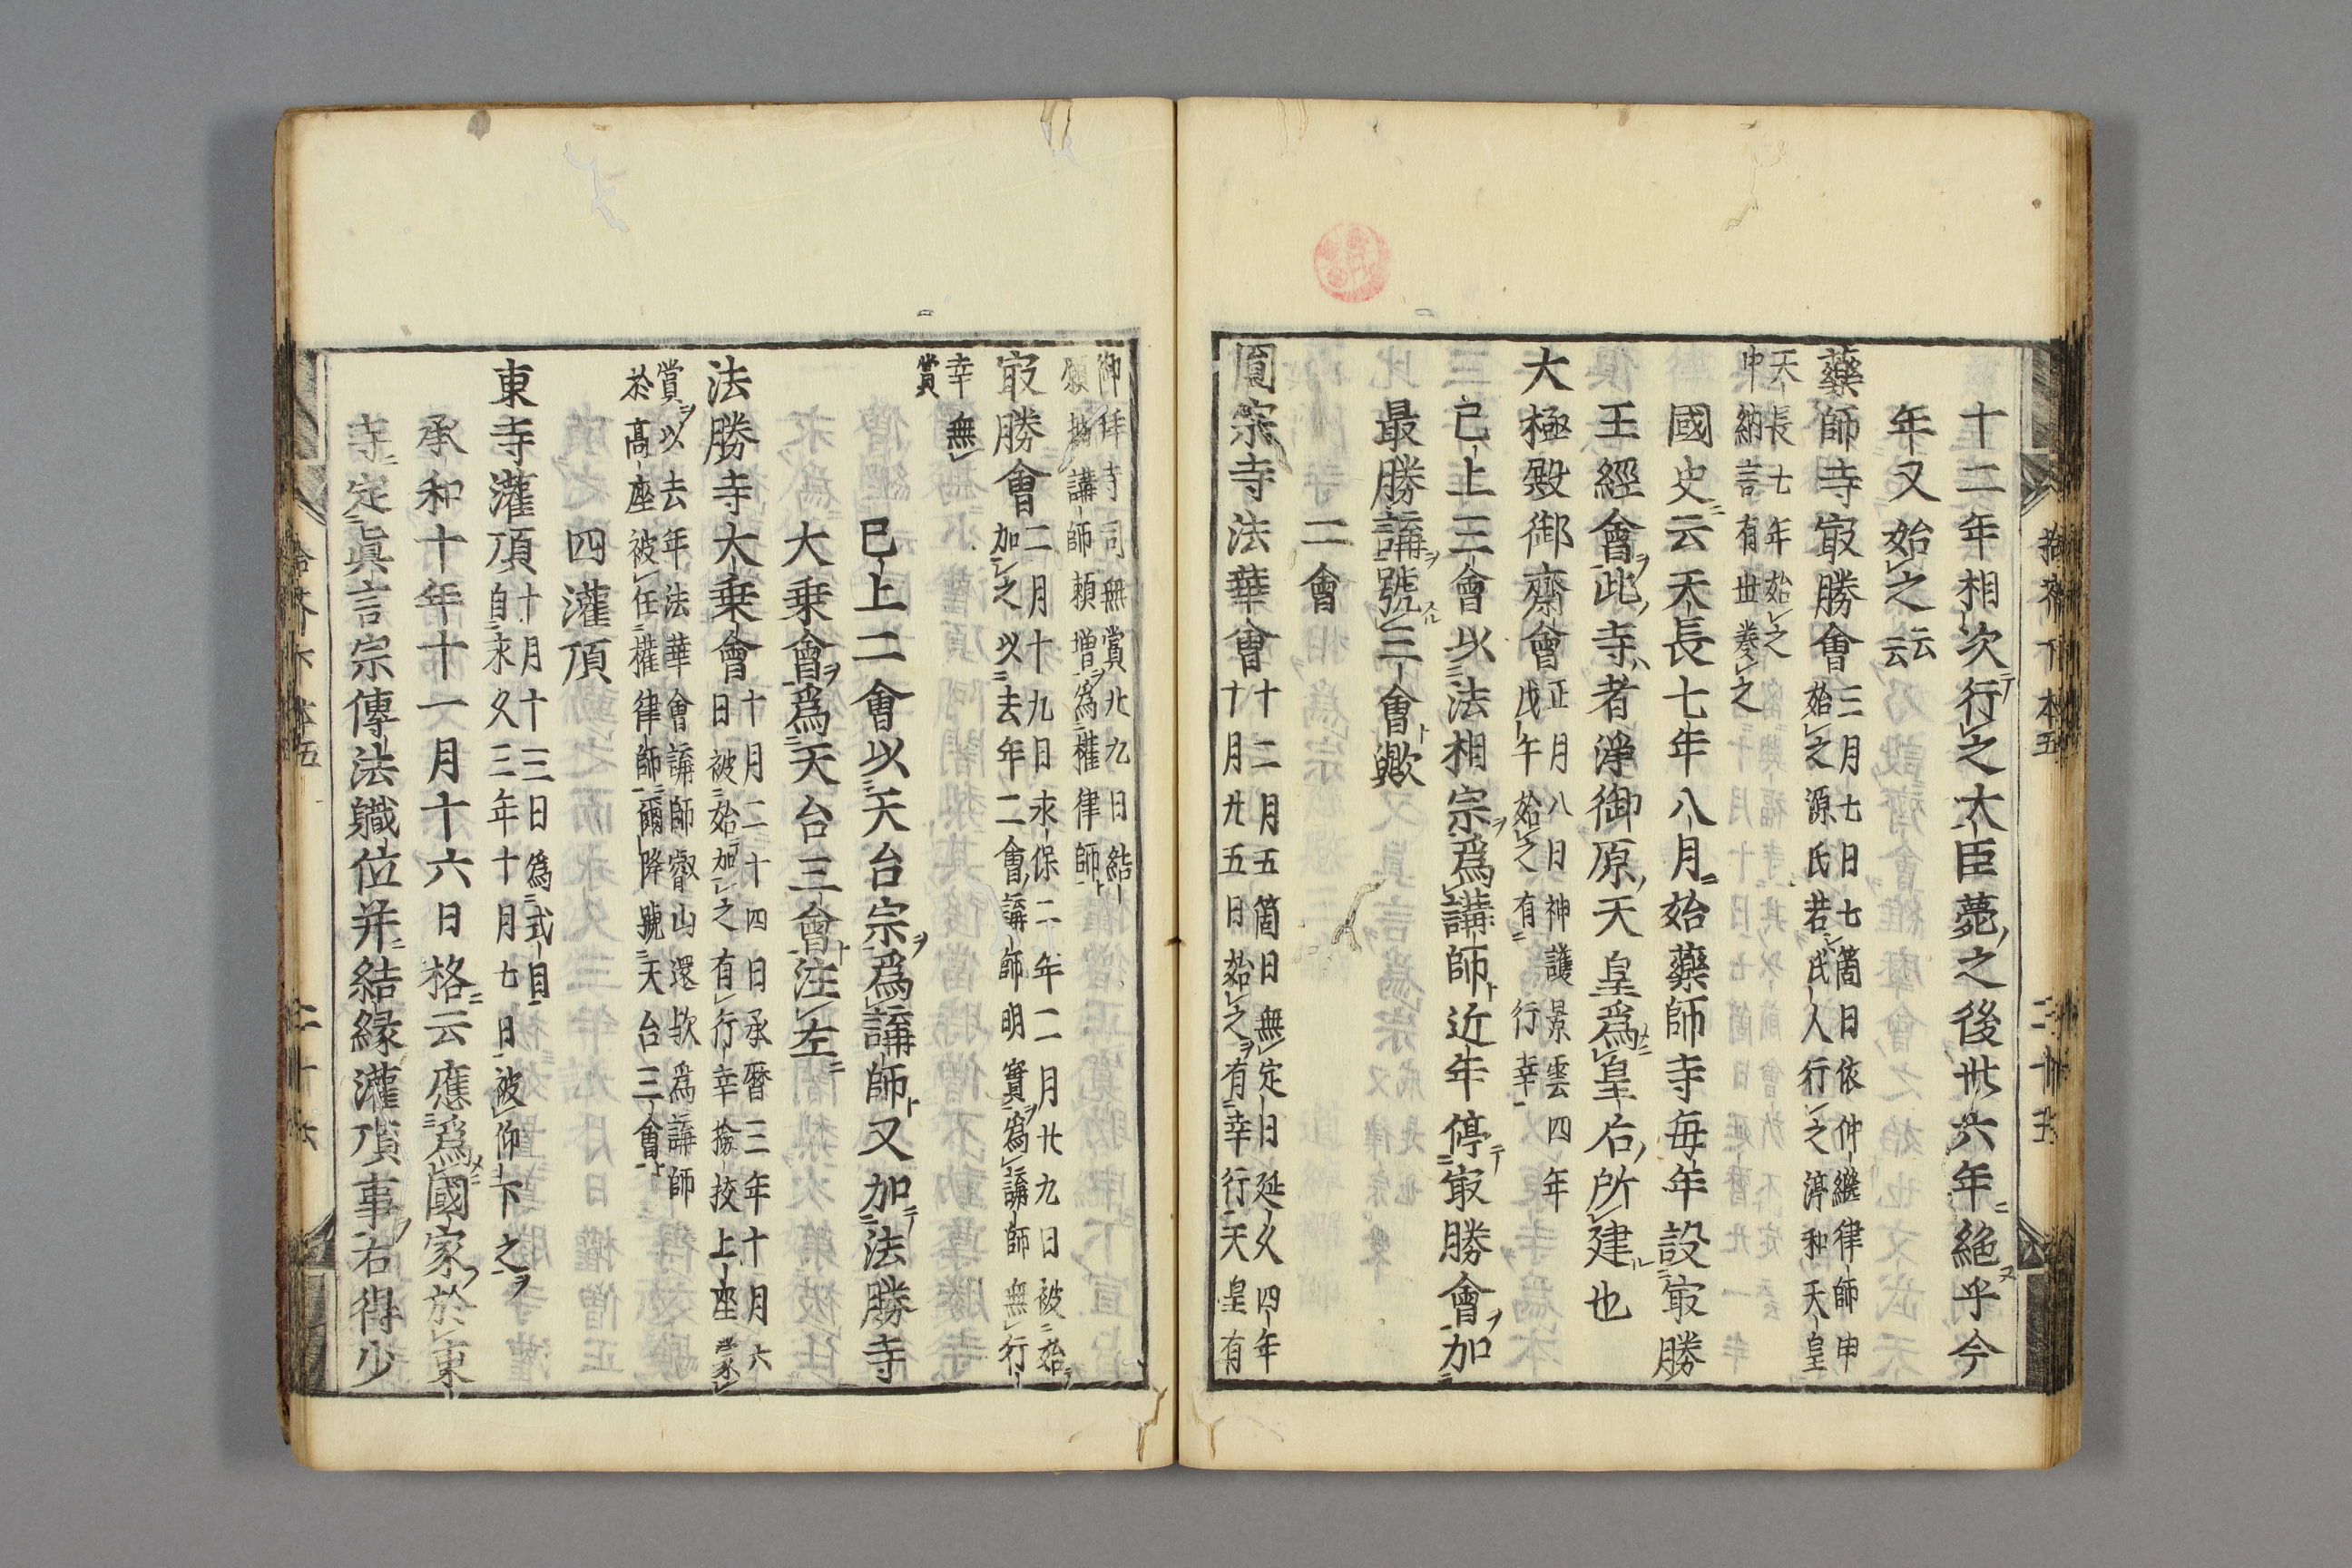 十二年相次行之大臣薨之後丗六年絶乎今
年又始之云云
藥師寺㝡勝會三月七日七箇日依仲繼律師申
始之源氏若氏人行之淳和天皇
天長七年始之
中納言有丗奏之
國史云天長七年八月始藥師寺毎年設㝡勝
王經會此寺者淨御原天皇爲皇后所建也
大極殿御齋會正月八日神護景雲四年
戊午始之有行幸
已上三會以法相宗爲講師近年停㝡勝會加
最勝講號三會歟
二會
圓宗寺法華會十二月五箇日無定日延久四年
十月廿五日始之有幸行天皇有
御拜寺司無賞北九日結
願講師頼増爲權律師
㝡勝會二月十九日永保二年二月廿九日被始
加之以去年二會講師明實爲講師無行
幸無
賞
已上二會以天台宗爲講師又加法勝寺
大乗會爲天台三會注左
法勝寺大乗會十月二十四日承暦三年十月六
日被始加之有行幸檢挍上座
賞以去年法華會講師叡山還欤爲講師
於高座被任權律師爾降號天台三會
四灌頂
東寺灌頂十月十三日爲式目
自永久三年十月七日被仰下之
承和十年十一月十六日格云應爲國家於東
寺定眞言宗傳法軄位并結縁灌頂事右得少